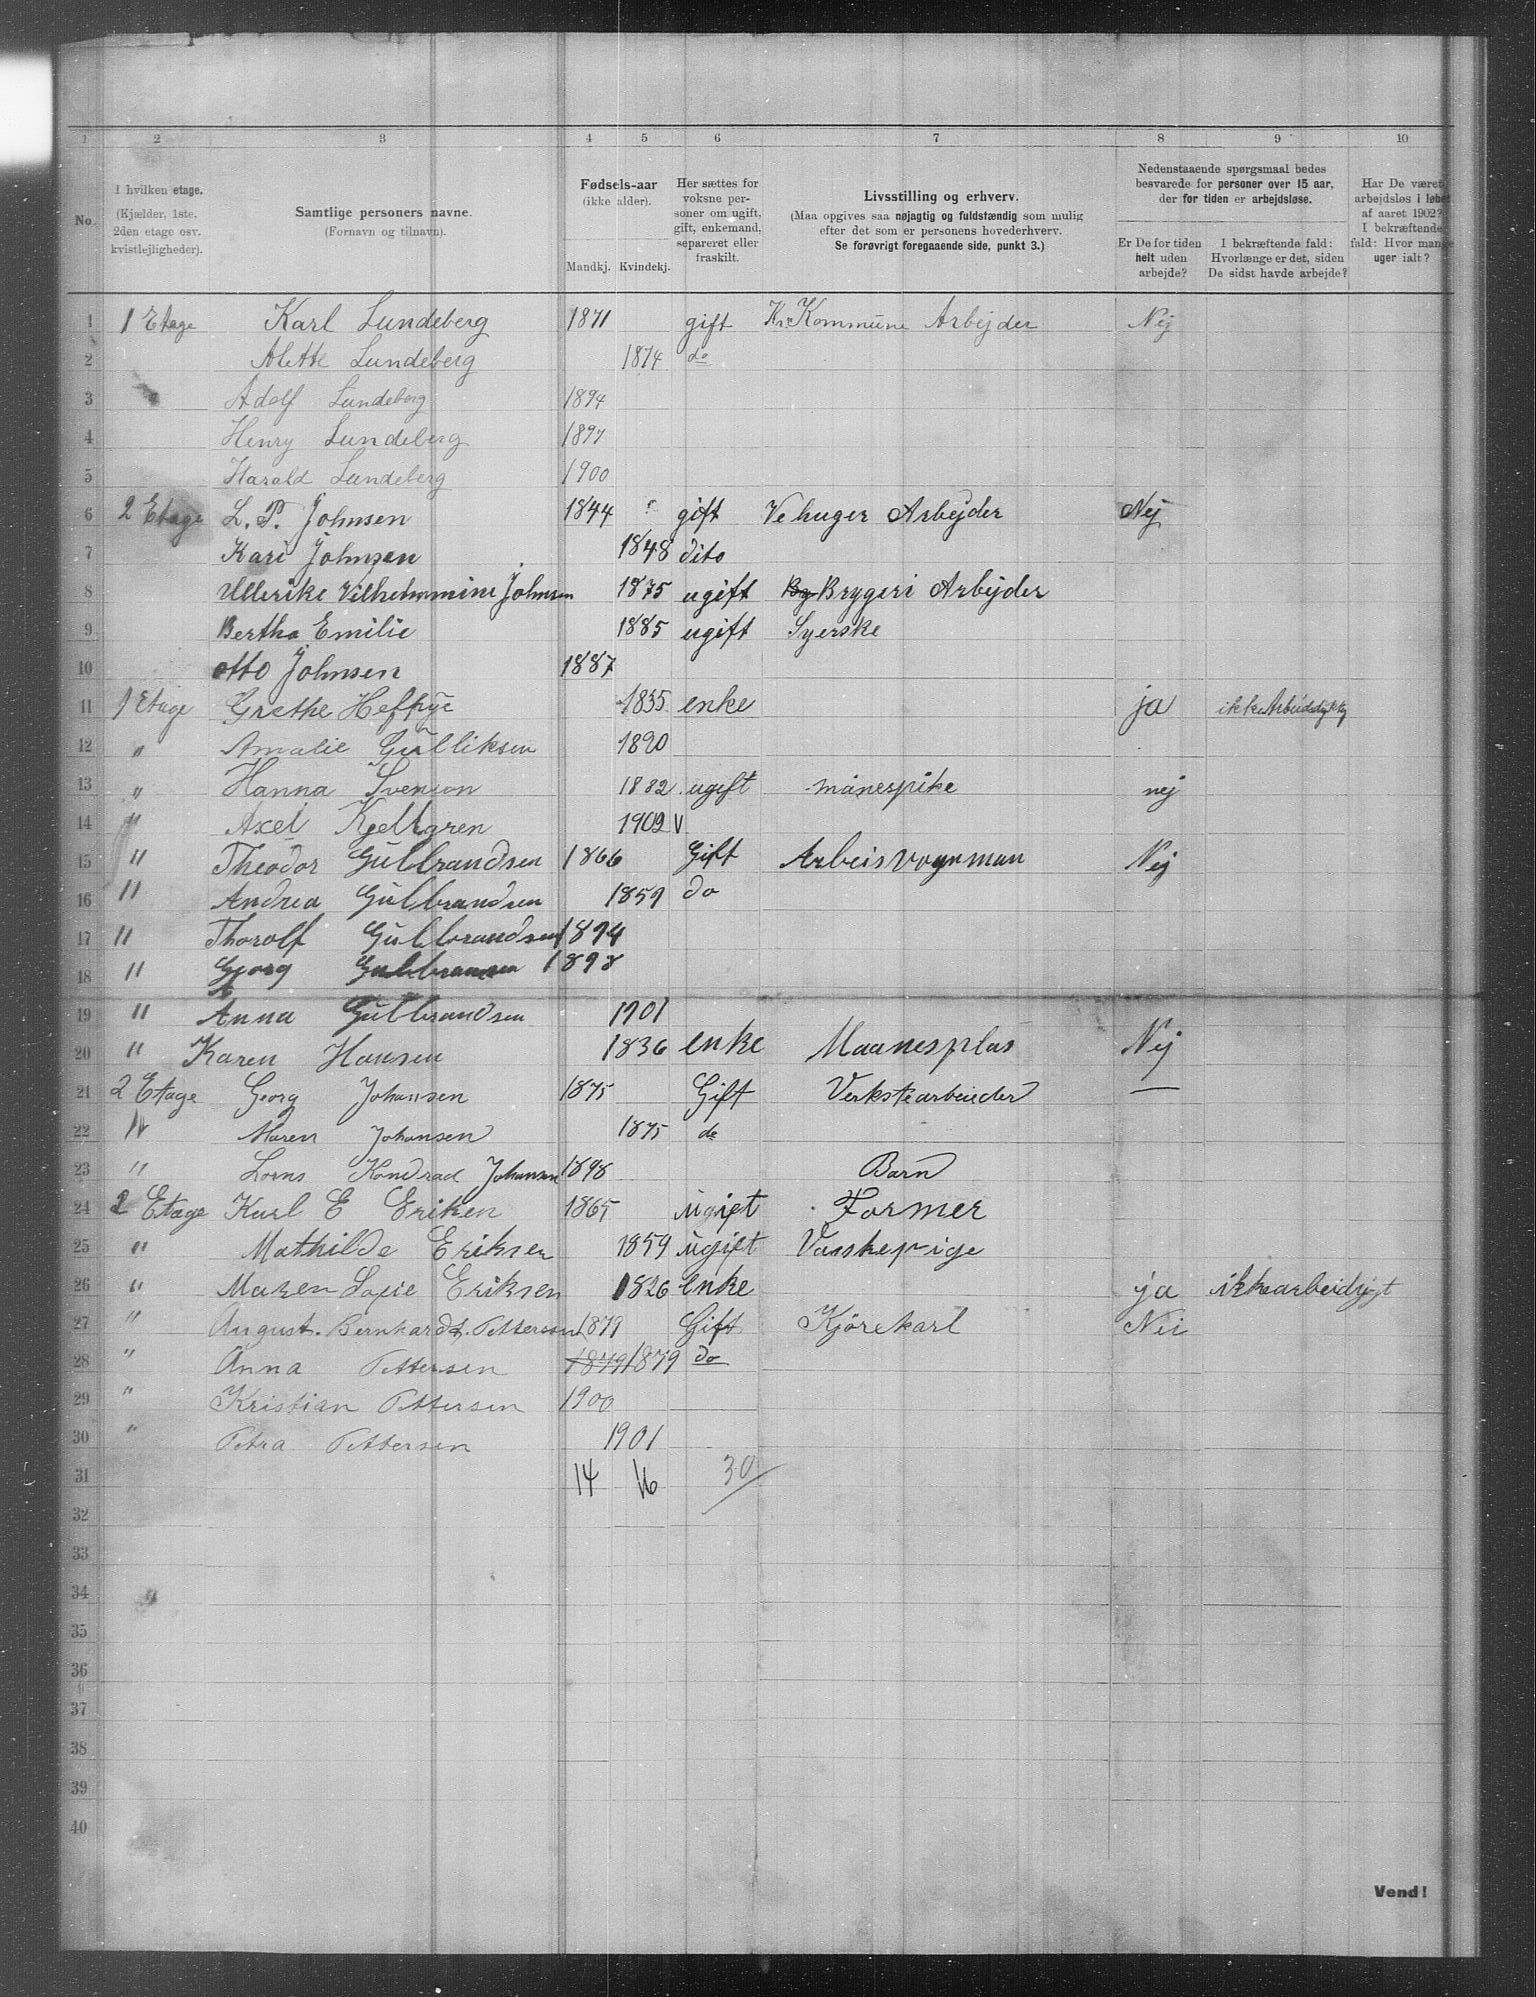 1 2 3 4 5 6 7 8 9 10
No.
I hvilken etage. (Kjælder, 1ste. 2den etage osv. kvistlejligheder).
Samtlige personers navne. (Fornavn og tilnavn).
Fødsels-aar (ikke alder). Mandkj. Kvindekj.
Her sættes for voksne personer om ugift, gift, enkemand, separeret eller fraskilt.
Livsstilling og erhverv. (Maa opgives saa nøjagtig og fuldstændig som mulig efter det som er personens hovederhverv. Se forøvrigt foregaaende side, punkt 3.)
Nedenstaaende spørgsmaal bedes besvarede for personer over 15 aar, der for tiden er arbejdsløse.
Er De for tiden helt uden arbejde?
I bekræftende fald: Hvorlænge er det, siden De sidst havde arbejde?
Har De været arbejdsløs i løbet af aaret 1902? I bekræftende fald: Hvor mange uger ialt?
1 1 Etage Karl Lundeberg 1871 gift Kr. Kommune Arbejder Nej
2 Alette Lundeberg 1874 do
3 Adolf Lundeberg 1894
4 Henry Lundeberg 1897
5 Harald Lundeberg 1900
6 2 Etage L. P. Johnsen 1844 gift Vehuger Arbejder Nej
7 Kari Johnsen 1848 dito
8 Ullerike Vilhelmmine Johnsen 1875 ugift By Brygeri Arbejder
9 Bertha Emilie 1885 ugift Syerske
10 otto Johnsen 1887
11 1 Etage Grethe 1835 enke ja
12 " Amalie Gulliksen 1890
13 " Hanna Svenson 1882 ugift månespike nej
14 " Axel Kjellgren 1902 V
15 " Theodor Gulbrandsen 1866 Gift Arbeisvognman Nej
16 " Andrea Gulbrandsen 1859 do
17 " Thorolf Gulbrandsen 1894
18 " Georg Gulbransen 1898
19 " Anna Gulbrandsen 1901
20 " Karen Hansen 1836 enke Maanesplas Nej
21 2 Etage Georg Johansen 1875 Gift Verkstearbeider —
22 " Maren Johansen 1875 do
23 " Kondrad Johansen 1898 Barn
24 2 Etage Karl E Eriken 1865 ugift Former
25 " Mathilde Eriksen 1859 ugift Vaskepige
26 " Maren Sofie Eriksen 1826 enke ja ikkearbeidygt
27 " August. Bernhardt. Pettersen 1879 Gift Kjörekarl Nei
28 " Anna Pettersen 1879 1879 do
29 " Kristian Pettersen 1900
30 " Petra Pettersen 1901
31 14 16 30
32
33
34
35
36
37
38
39
40
Vend!